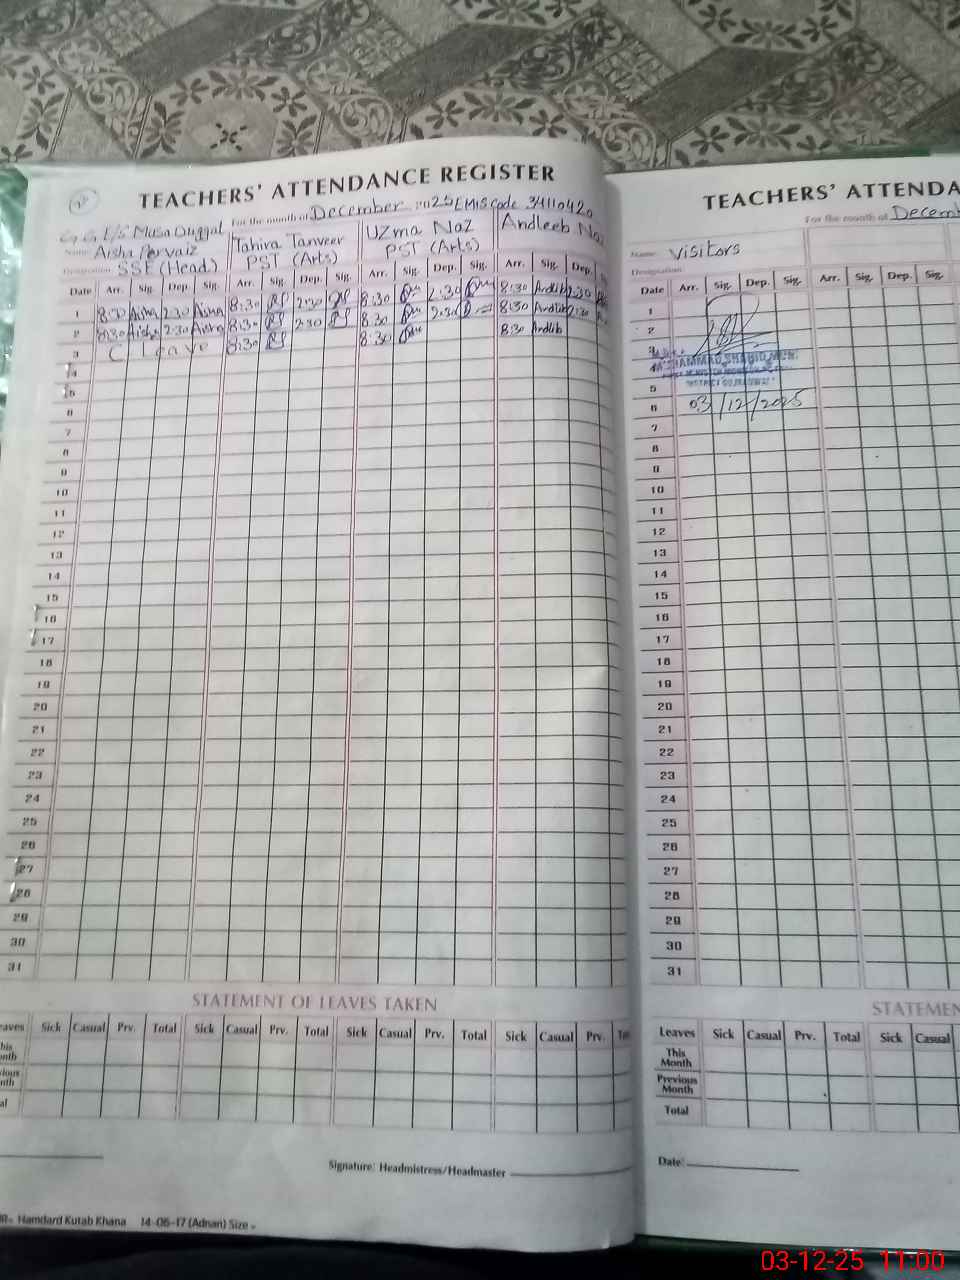 TEACHERS' ATTENDANCE REGISTER
For the month of December 2025 EMIS Code 34110420
G.G.E/S Musa Duggal
Name Aisha Parvaiz Tahira Tanveer Uzma Naz Andleeb Naz
Designation SSE (Head.) PST (Arts) PST (Arts)
Date Arr. Sig. Dep. Sig. Arr. Sig. Dep. Sig. Arr. Sig. Dep. Sig. Arr. Sig. Dep.
1 8:30 Aisha 2:30 Aisha 8:30 2:30 8:30 2:30 8:30 Andlib 2:30
2 8:30 Aisha 2:30 Aisha 8:30 2:30 8:30 2:30 8:30 Andlib 2:30
3 C leave 8:30 8:30 8:30 Andlib
4
5
6
7
8
9
10
11
12
13
14
15
16
17
18
19
20
21
22
23
24
25
26
27
28
29
30
31
STATEMENT OF LEAVES TAKEN
eaves Sick Casual Prv. Total Sick Casual Prv. Total Sick Casual Prv. Total Sick Casual Prv.
Signature: Headmistress/Headmaster
Hamdard Kutab Khana 14-06-17 (Adnan) Size
TEACHERS' ATTENDA
For the month of Decemb
Name Visitors
Designation
Date Arr. Sig. Dep. Sig. Arr. Sig. Dep. Sig.
1
2
3
4
5
6 03/12/2025
7
8
9
10
11
12
13
14
15
16
17
18
19
20
21
22
23
24
25
26
27
28
29
30
31
STATEMEN
Leaves Sick Casual Prv. Total Sick Casual
This Month
Previous Month
Total
Date:
03-12-25 11:00